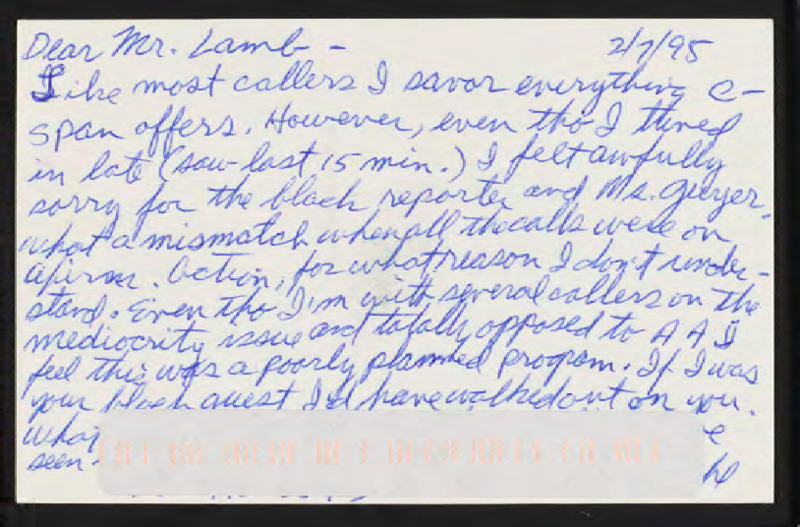 Dear Mr. Lamb - 2/7/95
Like most callers I savor everything C-
span offers. However, even tho I tuned
in late (saw last 15 min.) I felt awfully
sorry for the black reporter and Ms. Geyer.
what a mismatch when all the calls were on
afirm. Action, for what reason I don't under-
stand. Even tho I'm with several callers on the
mediocrity issue and totally opposed to A A I
feel this was a poorly planned program. If I was
your black guest I'd have walked out on you.
what
seen